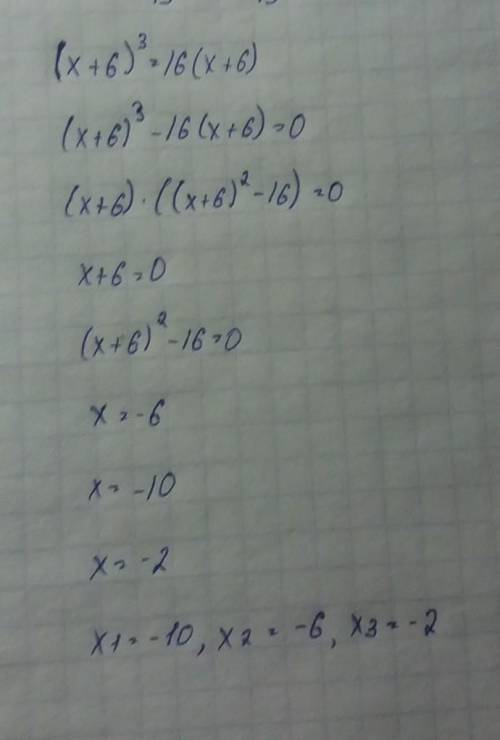 (x+6)³=16(x+6)
(x+6)³-16(x+6)=0
(x+6)·((x+6)²-16)=0
x+6=0
(x+6)²-16=0
x=-6
x=-10
x=-2
x1=-10, x2=-6, x3=-2